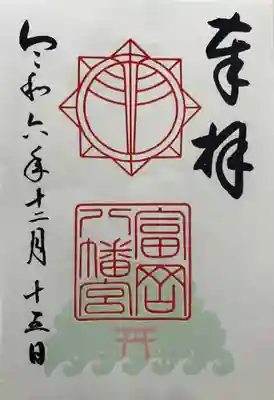 奉拝
富岡
八幡宮
令和六年十二月十五日